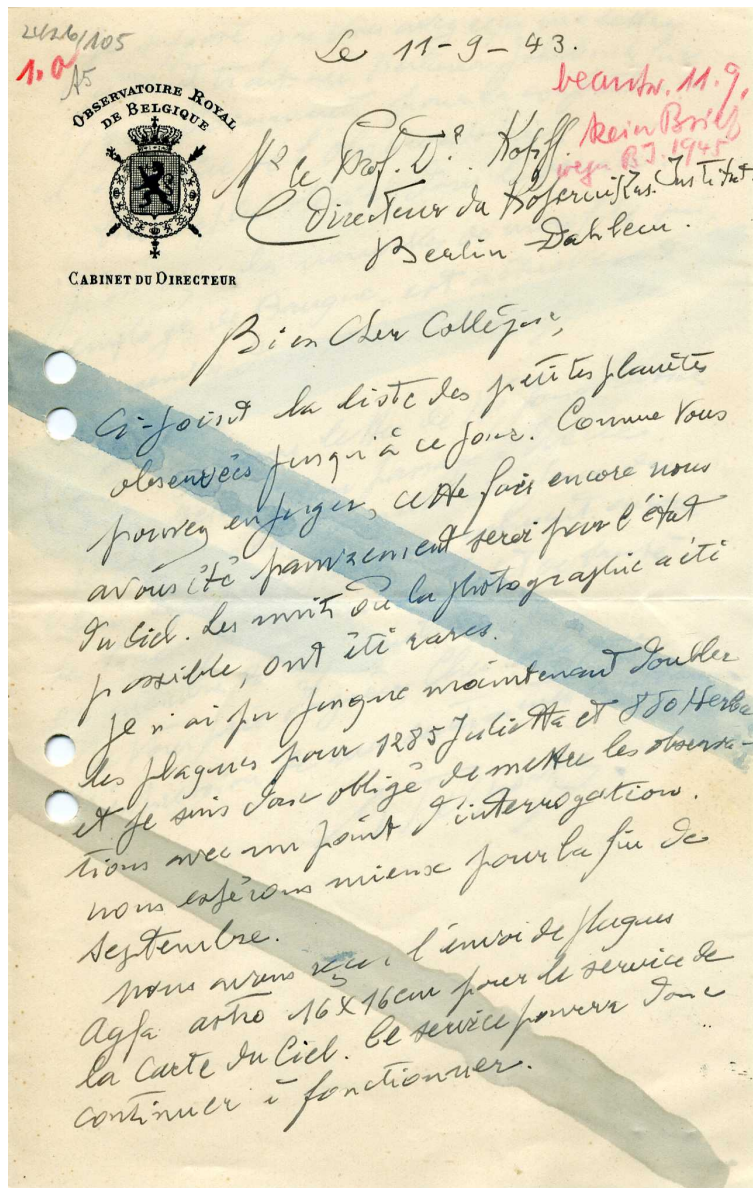 2426/105
1.a
A5
Le 11-9-43.
beantw. 11.9.
kein Brief
wegen B.J. 1945
OBSERVATOIRE ROYAL
DE BELGIQUE
CABINET DU DIRECTEUR
Mr le Prof. Dr Kopff.
Directeur du Kopernikus. Institut.
Berlin-Dahlem.
Bien Cher Collègue,
Ci-joint la liste des petites planètes
observées jusqu'à ce jour. Comme Vous
pouvez en juger, cette fois encore nous
avons été servi par l'état
du Ciel. Les nuits où la photographie a été
possible, ont été rares.
Je n'ai pu jusque maintenant doubler
les plaques pour 1285 Julietta et 880 Herba
et je suis donc obligé de mettre les observa-
tions avec un point d'interrogation.
nous espérons mieux pour la fin de
septembre.
Nous avons reçu l'envoi de plaques
Agfa astro 16x16cm pour le service de
la Carte du Ciel. Ce service pourra donc
continuer à fonctionner.